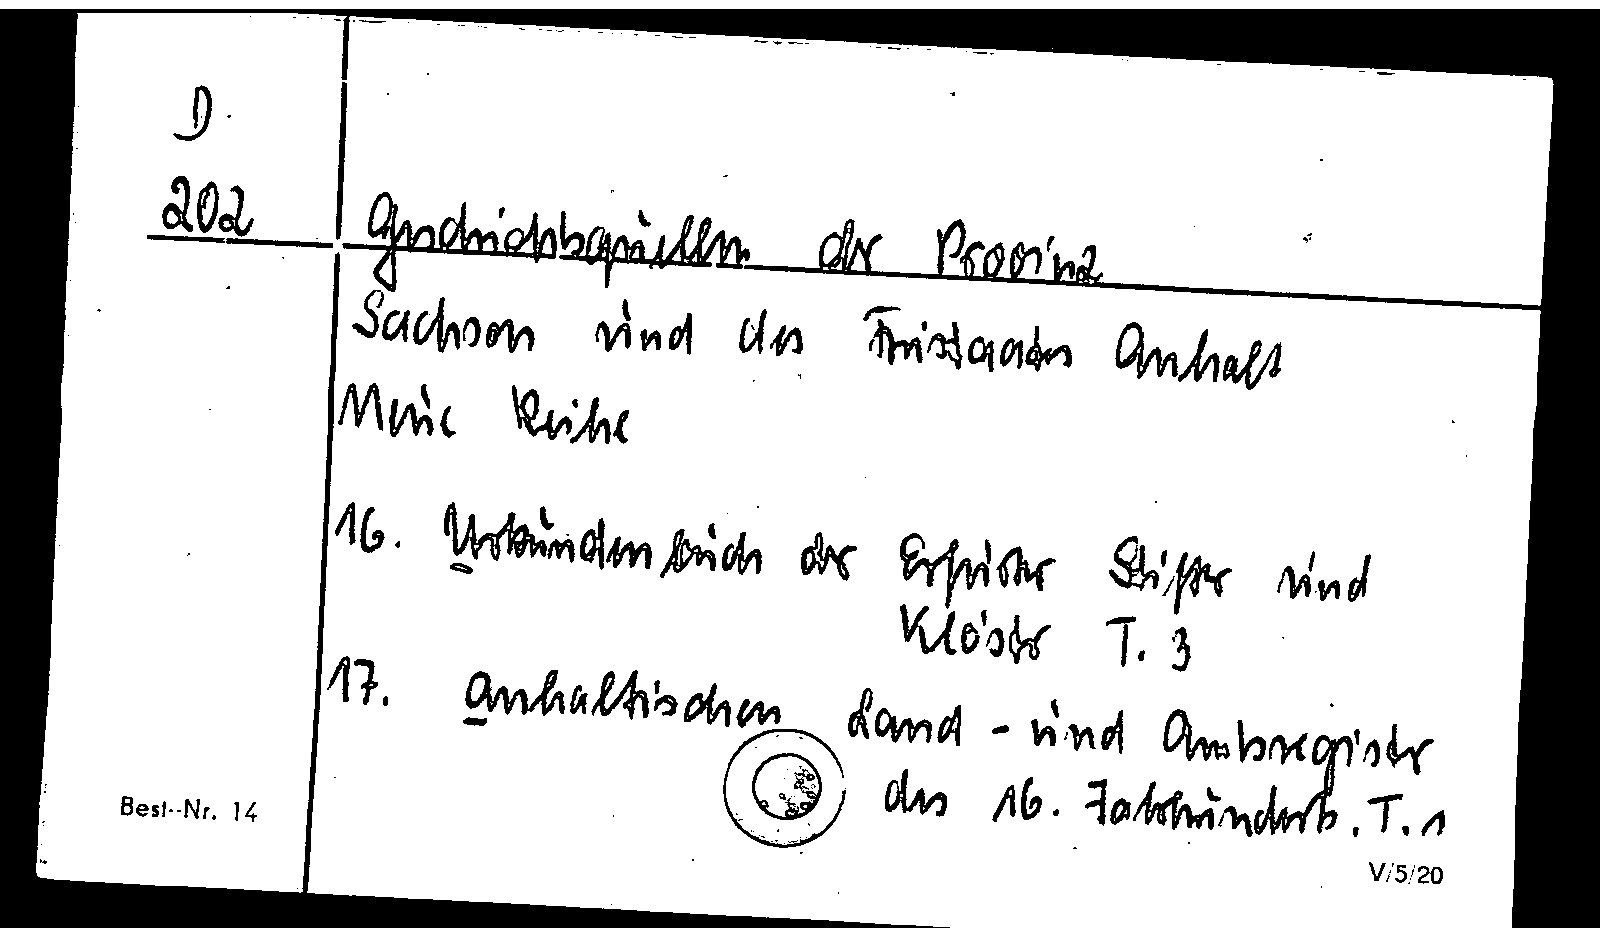 D
202
Geschichtsquellen der Provinz
Sachsen und des Freistaates Anhalt
Neue Reihe
16. Urkundenbuch der Erfurter Stifter und
Klöster T. 3
17. Anhaltischen Land- und Amtsregister
des 16. Jahrhunderts. T. 1
Best.-Nr. 14
V/5/20